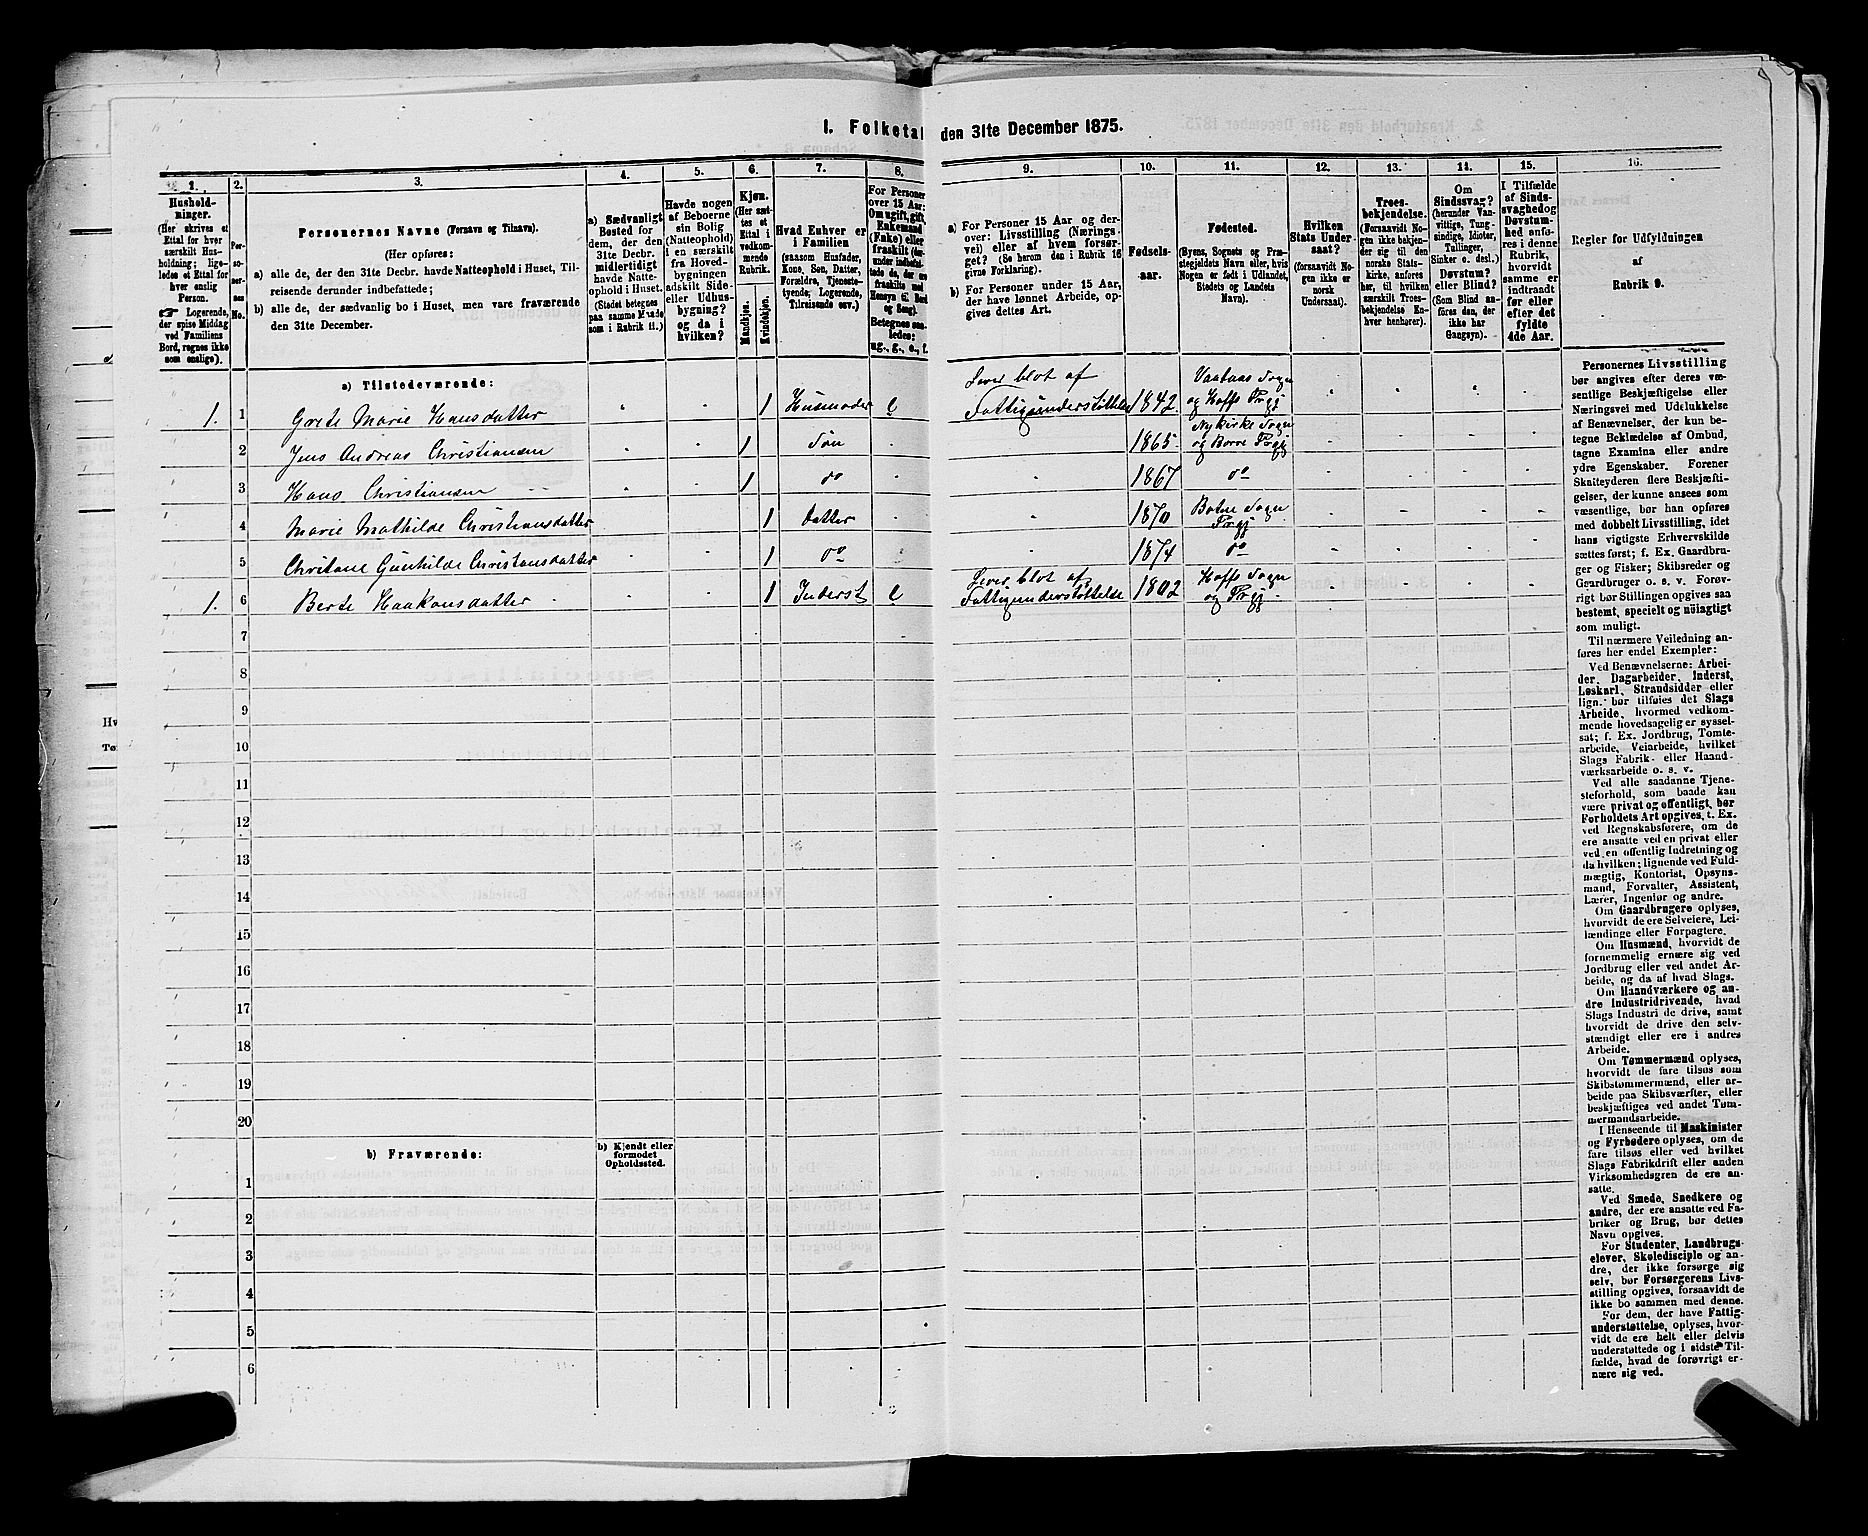 1. Folketal den 31te December 1875.
1.
Hushold-
ninger.
(Her skrives et
Ettal for hver
særskilt Hus-
holdning; lige-
ledes et Ettal for
hver enslig
Person.
☞ Logerende,
der spise Middag
ved Familiens
Bord, regnes ikke
som enslige).
2.
Per-
so-
ner-
nes
No.
3.
Personernes Navne (Fornavn og Tilnavn).
(Her opføres:
a) alle de, der den 31te Decbr. havde Natteophold i Huset, Til-
reisende derunder indbefattede;
b) alle de, der sædvanlig bo i Huset, men vare fraværende
den 31te December.
4.
a) Sædvanligt
Bosted for
dem, der den
31te Decbr.
midlertidigt
havde Natte-
ophold i Huset.
(Stedet betegnes
paa samme Maade
som i Rubrik 11.)
5.
Havde nogen
af Beboerne
sin Bolig
(Natteophold)
i en særskilt
fra Hoved-
bygningen
adskilt Side-
eller Udhus-
bygning?
og da i
hvilken?
6.
Kjøn.
(Her sæt-
tes et
Ettal i
vedkom-
mende
Rubrik.
Mandkjøn.
Kvindekjøn.
7.
Hvad Enhver er
i Familien
(saasom Husfader,
Kone, Søn, Datter,
Forældre, Tjeneste-
tyende, Logerende,
Tilreisende osv.)
8.
For Personer
over 15 Aar:
Om ugift, gift,
Enkemand
(Enke) eller
fraskilt (der-
under indbefat-
tede de, der ere
fraskilte med
Hensyn til Bord
og Seng).
Betegnes saa-
ledes:
ug., g., e., f.
9.
a) For Personer 15 Aar og der-
over: Livsstilling (Nærings-
vei) eller af hvem forsør-
get? (Se herom den i Rubrik 16
givne Forklaring).
b) For Personer under 15 Aar,
der have lønnet Arbeide, op-
gives dettes Art.
10.
Fødsels-
aar.
11.
Fødested.
(Byens, Sognets og Præ-
stegjeldets Navn eller, hvis
Nogen er født i Udlandet,
Stedets og Landets
Navn).
12.
Hvilken
Stats Under-
saat?
(forsaavidt No-
gen ikke er
norsk
Undersaat).
13.
Troes-
bekjendelse.
(Forsaavidt No-
gen ikke bekjen-
der sig til den
norske Stats-
kirke, anføres
her, til hvilken
særskilt Troes-
bekjendelse En-
hver henhører).
14.
Om
Sindssvag?
(herunder Van-
vittige, Tung-
sindige, Idioter,
Tullinger,
Sinker o. desl.)
Døvstum?
eller Blind?
(Som Blind an-
føres den, der
ikke har
Gangsyn).
15.
I Tilfælde
af Sinds-
svaghed og
Døvstum-
hed anfø-
res i denne
Rubrik,
hvorvidt
samme er
indtraadt
før eller
efter det
fyldte
4de Aar.
16.
Regler for Udfyldningen
af
Rubrik 9.
a) Tilstedeværende:
1. 1 Grete Marie Hansdatter 1 Husmoder e Lever blot af Fattigunderstøttelse 1842 og Hoffs Prgj
2 Jens Andreas Christiansen 1 Søn 1865 Nykirke Sogn og Borre Prgj
3 Hans Christiansen 1 do 1867 do
4 Marie Mathilde Christiansdatter 1 Datter 1870 Botne Sogn Prgj
5 Christane Gunhilde Christansdatter 1 do 1874 do
1. 6 Berte Haakonsdatter 1 Inderst e Lever blot af Fattigunderstøttelse 1802 Hoffs Sogn og Prgj
7
8
9
10
11
12
13
14
15
16
17
18
19
20
b) Fraværende:
b) Kjendt eller
formodet
Opholdssted.
1
2
3
4
5
6
Personernes Livsstilling
bør angives efter deres væ-
sentlige Beskjæftigelse eller
Næringsvei med Udelukkelse
af Benævnelser, der kun be-
tegne Beklædelse af Ombud,
tagne Examina eller andre
ydre Egenskaber. Forener
Skatteyderen flere Beskjæfti-
gelser, der kunne ansees som
væsentlige, bør han opføres
med dobbelt Livsstilling, idet
hans vigtigste Erhvervskilde
sættes først; f. Ex. Gaardbru-
ger og Fisker; Skibsreder og
Gaardbruger o. s. v. Forøv-
rigt bør Stillingen opgives saa
bestemt, specielt og nøiagtigt
som muligt.
Til nærmere Veiledning an-
føres her endel Exempler:
Ved Benævnelserne: Arbei-
der, Dagarbeider, Inderst,
Løskarl, Strandsidder eller
lign. bør tilføies det Slags
Arbeide, hvormed vedkom-
mende hovedsagelig er syssel-
sat; f. Ex. Jordbrug, Tomte-
arbeide, Veiarbeide, hvilket
Slags Fabrik- eller Haand-
værksarbeide o. s. v.
Ved alle saadanne Tjene-
steforhold, som baade kan
være privat og offentligt, bør
Forholdets Art opgives, t. Ex.
ved Regnskabsførere, om de
ere ansatte ved en privat eller
ved en offentlig Indretning og
da hvilken; lignende ved Fuld-
mægtig, Kontorist, Opsyns-
mand, Forvalter, Assistent,
Lærer, Ingeniør og andre.
Om Gaardbrugere oplyses,
hvorvidt de ere Selveiere, Lei-
lændinge eller Forpagtere.
Om Husmænd, hvorvidt de
fornemmelig ernære sig ved
Jordbrug eller ved andet Ar-
beide, og da af hvad Slags.
Om Haandværkere og an-
dre Industridrivende, hvad
Slags Industri de drive, samt
hvorvidt de drive den selv-
stændigt eller ere i andres
Arbeide.
Om Tømmermænd oplyses,
hvorvidt de fare tilsøs som
Skibstømmermænd, eller ar-
beide paa Skibsværfter, eller
beskjæftiges ved andet Tøm-
mermandsarbeide.
I Henseende til Maskinister
og Fyrbødere oplyses, om de
fare tilsøs eller ved hvilket
Slags Fabrikdrift eller anden
Virksomhedsgren de ere an-
satte.
Ved Smede, Snedkere og
andre, der ere ansatte ved Fa-
briker og Brug, bør dettes
Navn opgives.
For Studenter, Landbrugs-
elever, Skoledisciple og an-
dre, der ikke forsørge sig
selv, bør Forsørgerens Livs-
stilling opgives, forsaavidt de
ikke bo sammen med denne.
For dem, der have Fattig-
understøttelse, oplyses, hvor-
vidt de ere helt eller delvis
understøttede og i sidste Til-
fælde, hvad de forøvrigt er-
nære sig ved.